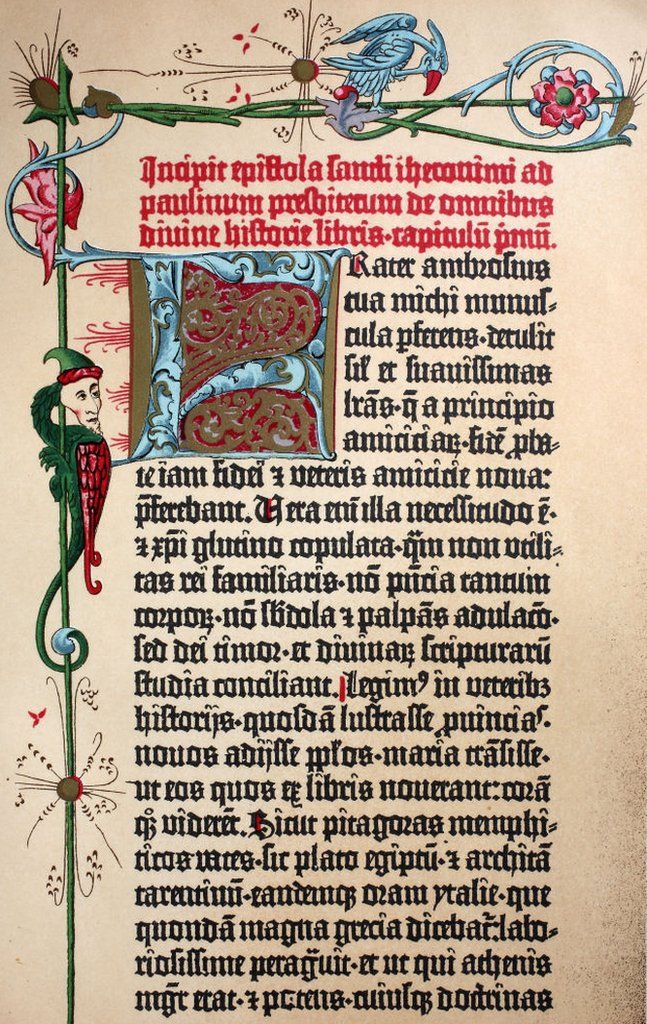 Incipit epistola sancti iheronimi ad
paulinum presbiterum de omnibus
divine historie libris·capitulū pmū.
FRater ambrosius
tua michi munus-
cula pferens·detulit
sil' et suavissimas
lrās·q̄ a principio
amiciciaꝝ·fidē pba-
te iam fidei ⁊ veteris amicicie nova:
pferebant. Vera eni illa necessitudo ē·
⁊ xpi glutino copulata·qm̄ non utili-
tas rei familiaris·nō pn̄cia tantum
corporꝝ·nō sbdola ⁊ palpās adulacō·
sed dei timor·et divinaꝝ scripturarū
studia conciliant. Legimꝰ in veteribꝫ
historijs·quosdā lustrasse pvincias·
novos adijsse pplos·maria trāsisse·
ut eos quos ex libris noverant: corā
qꝫ viderēt. Sicut pitagoras memphi-
ticos vates·sic plato egiptū·⁊ architā
tarentinū·eandemqꝫ oram ytalie·que
quondā magna grecia dicebat̄: labo-
riosissime peragvit·et ut qui athenis
mgr̄ erat·⁊ potens·cuiusqꝫ doctrinas